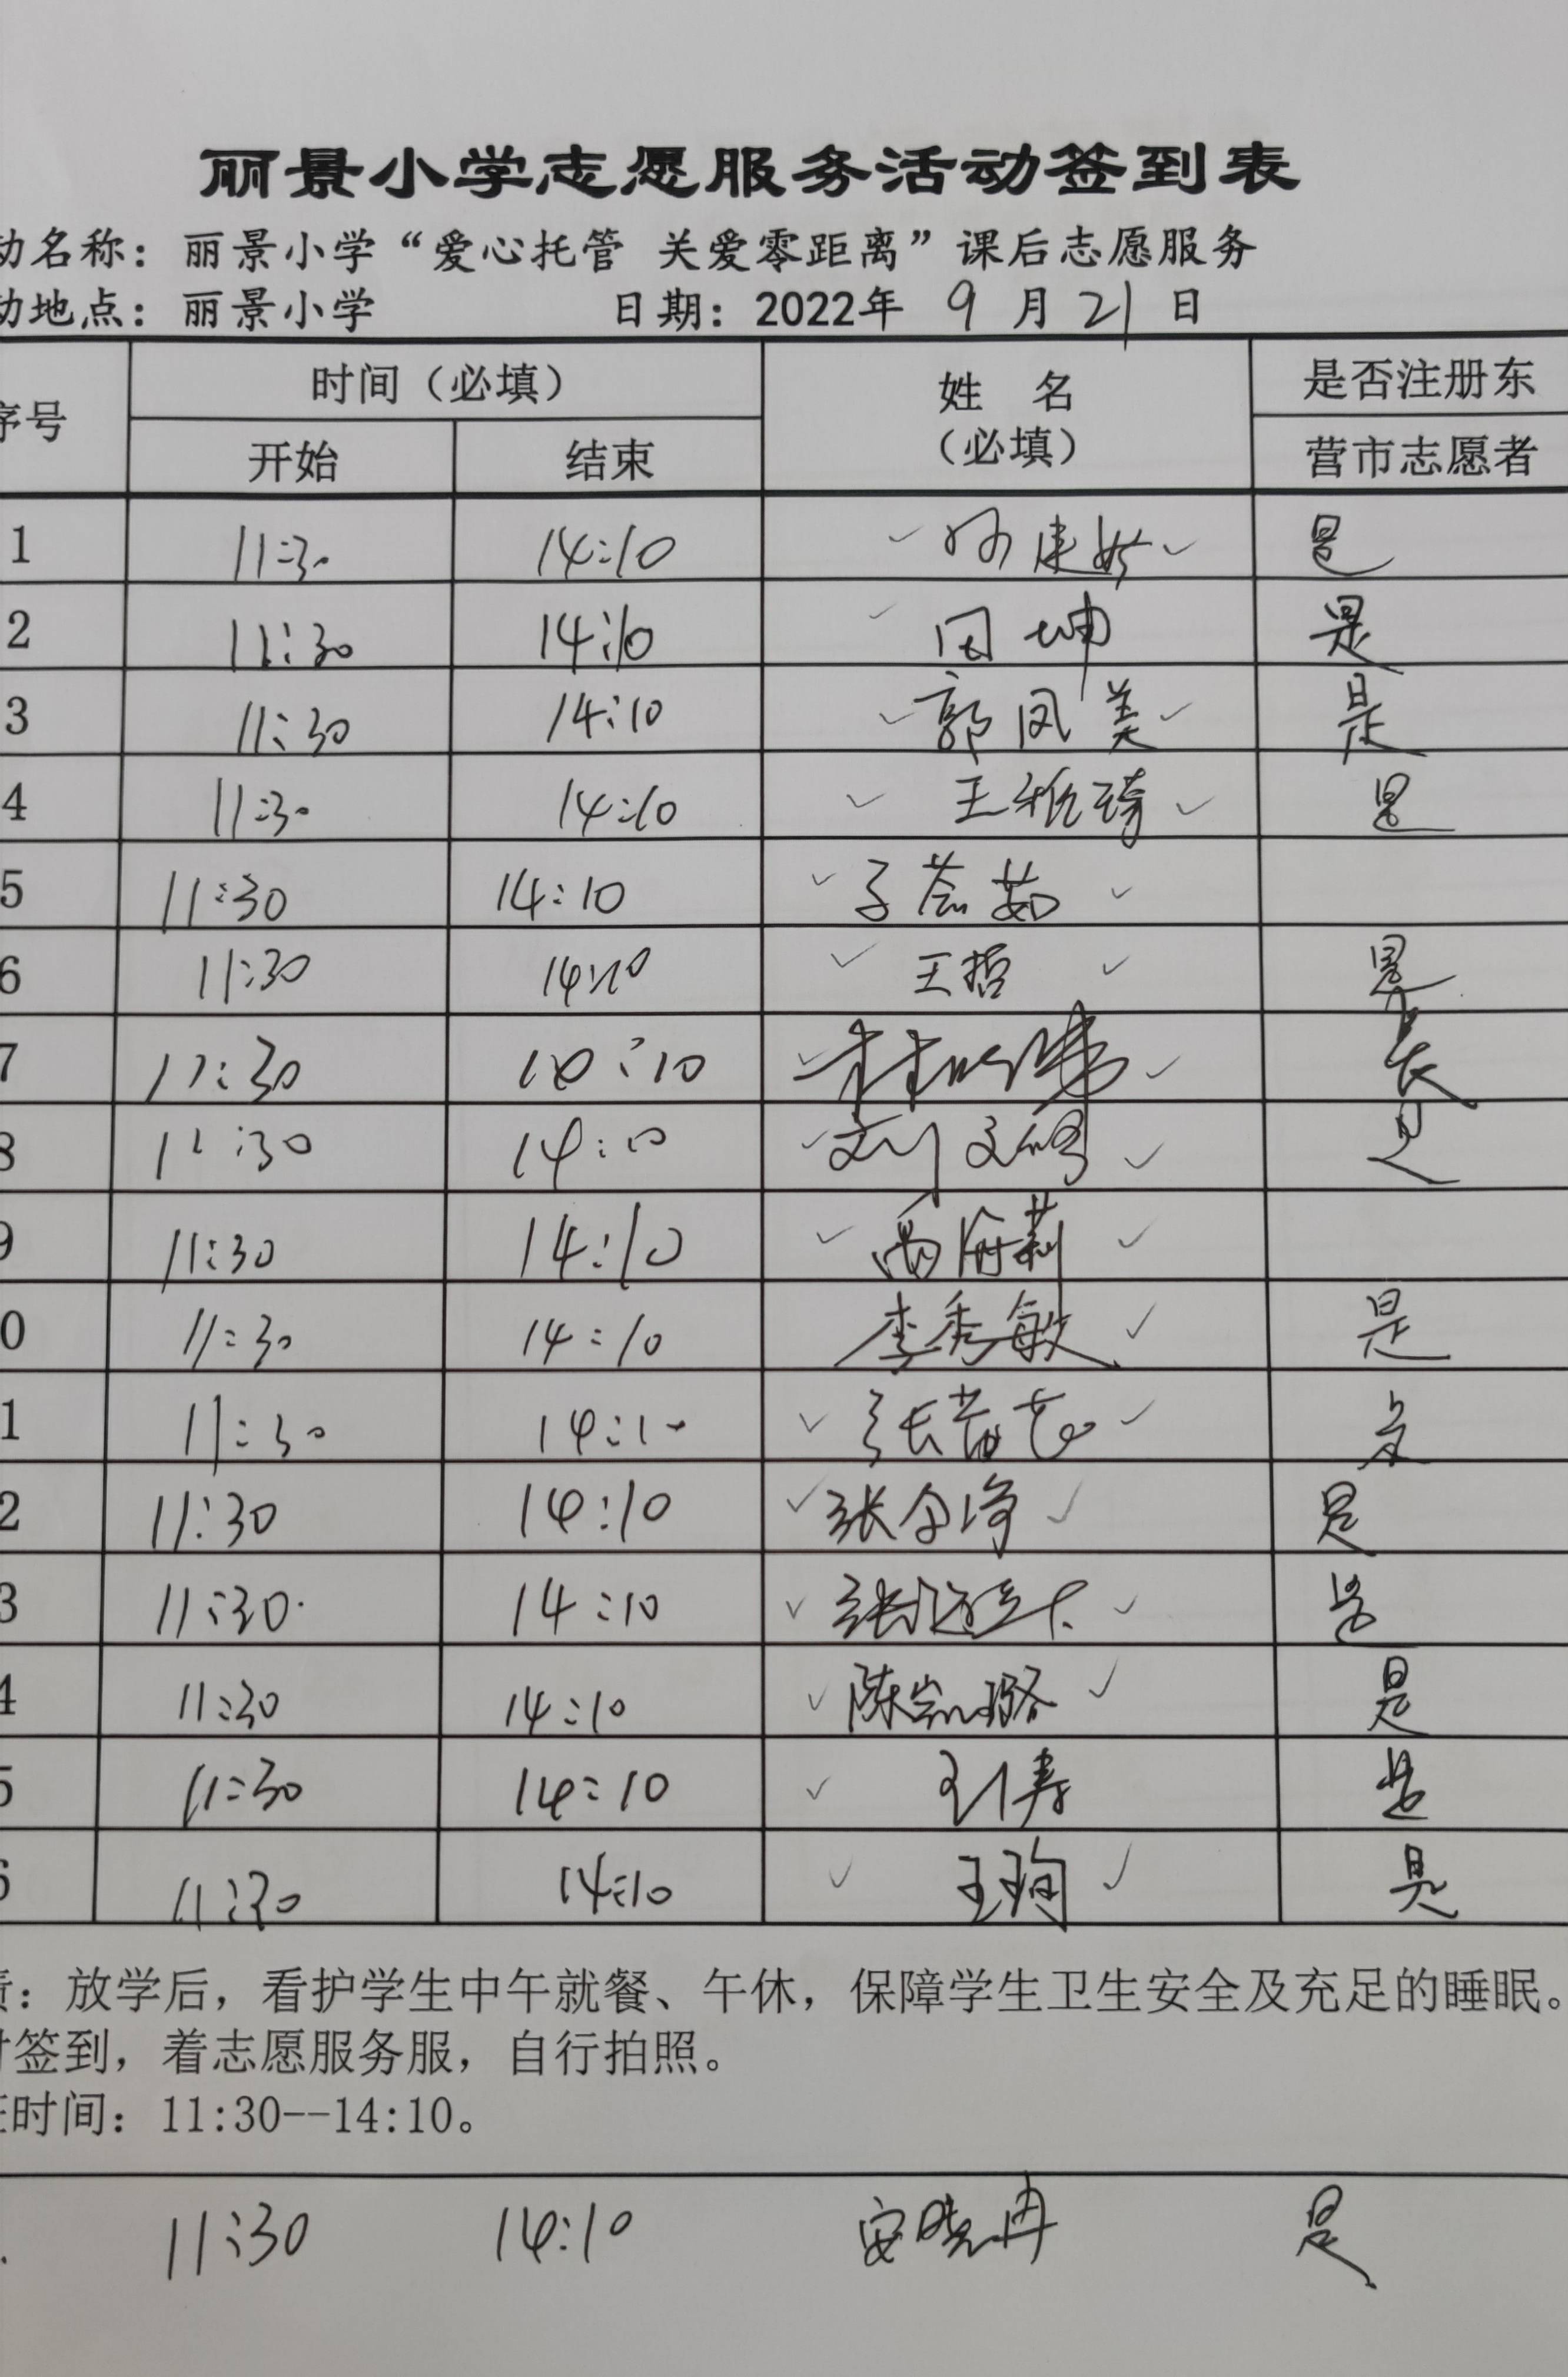 丽景小学志愿服务活动签到表
动名称：丽景小学“爱心托管 关爱零距离”课后志愿服务
动地点：丽景小学 日期：2022年 9 月 21 日
序号 时间（必填） 姓 名 （必填） 是否注册东
开始 结束 营市志愿者
1 11:30 14:10 是
2 11:30 14:10 田坤 是
3 11:30 14:10 郭凤美 是
4 11:30 14:10 王雅琦 是
5 11:30 14:10
6 11:30 14:10 王哲 是
7 11:30 10:10
8 11:30 14:10 是
9 11:30 14:10 禹海莉
0 11:30 14:10 李秀敏 是
1 11:30 14:10 张
2 11:30 14:10 张 是
3 11:30 14:10 张 是
4 11:30 14:10 陈凯璐 是
5 11:30 14:10 是
6 11:30 14:10 王珣 是
责：放学后，看护学生中午就餐、午休，保障学生卫生安全及充足的睡眠。
时签到，着志愿服务服，自行拍照。
时间：11:30--14:10。
11:30 14:10 安晓冉 是